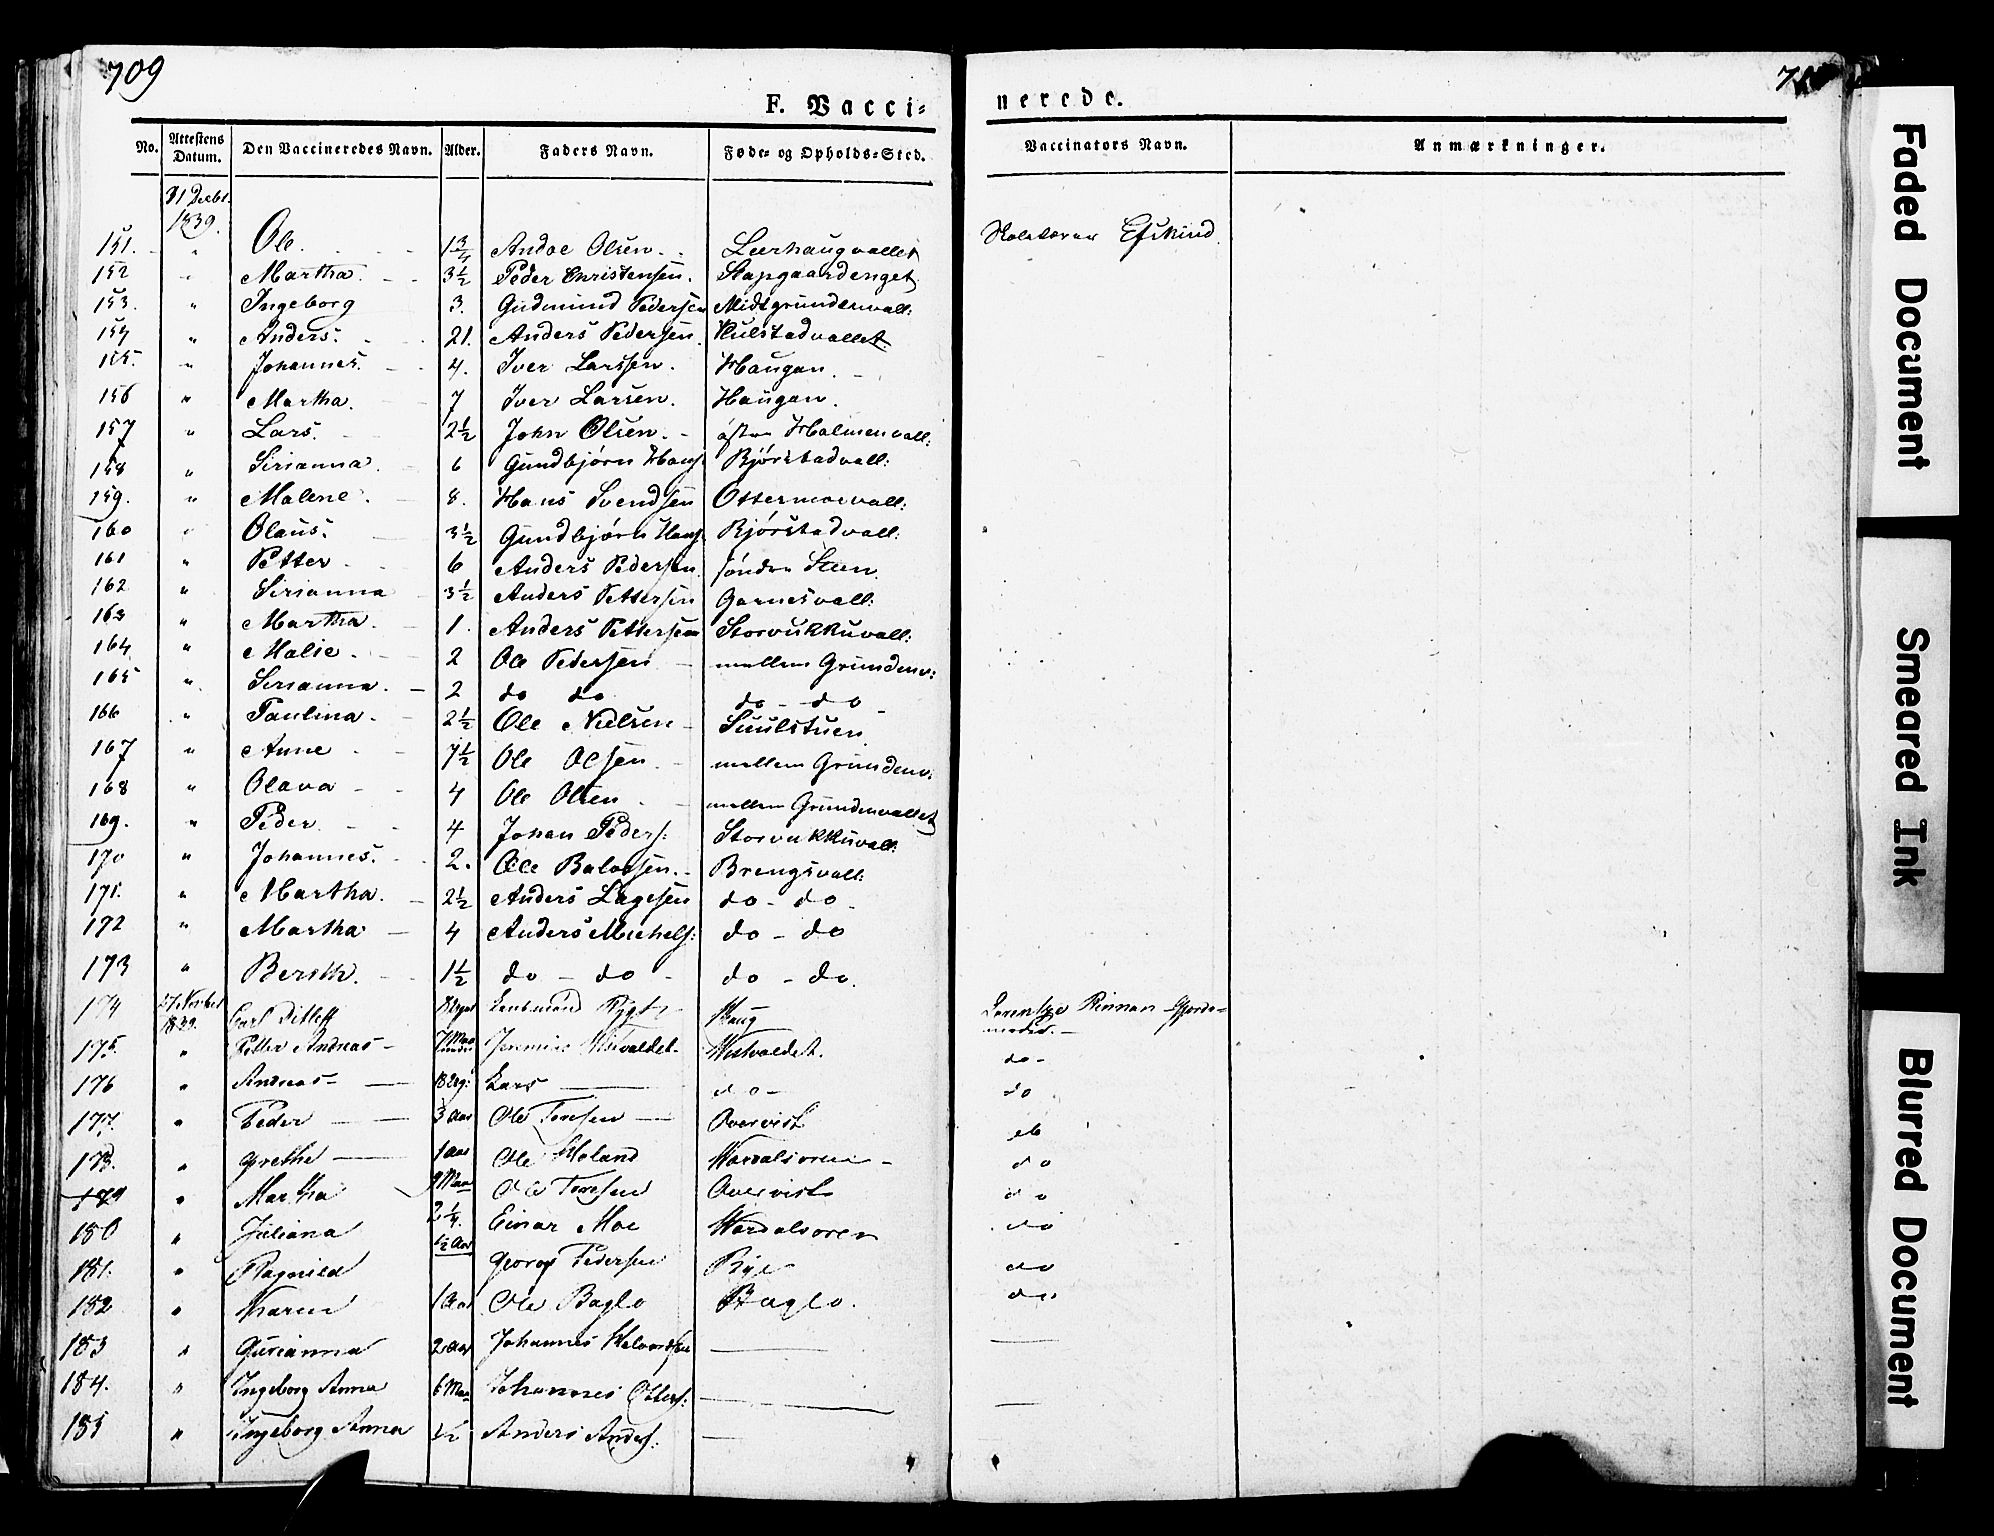 709
F. Vacci-
nerede.
No. Attestens Datum. Den Vaccineredes Navn. Alder. Faders Navn. Føde- og Opholds-Sted. Vaccinators Navn. Anmærkninger.
31 Decbr.
1839.
151. " Ole. 1 3/4 Andor Olsen. Leerhaugvallet Eskind
152 " Martha. 3 1/2 Peder Christensen. Stapgaardenget
153. " Ingeborg 3. Gudmund Pedersen Midtgrundenvall:
154 " Anders. 21. Anders Pedersen. Kulstadvallet.
155. " Johannes. 4. Iver Larssen. Haugan.
156 " Martha. 7 Iver Larsen. Haugan.
157 " Lars. 2 1/2 John Olsen. østre Holmenvall:
158 " Sirianna. 6 Gundbjørn Hans. Bjørstadvall:
159. " Malene. 8. Hans Svendsen Ottermoevall:
160 " Olaus. 3 1/2 Gundbjørn Hans. Bjørstadvall:
161 " Petter. 6 Anders Pedersen. søndre Steen.
162 " Sirianna 3 1/2 Anders Pettersen Garnesvall:
163 " Martha. 1. Anders Pettersen Storvukkuvall:
164 " Malie. 2 Ole Pedersen mellem Grundenv:
165 " Sirianna. 2 do do do - do
166 " Paulina. 2 1/2 Ole Nielsen Suulstuen
167 " Anne 7 1/2 Ole Olsen. mellem Grundenv:
168 " Olava 4 Ole Olsen mellem Grundenvallet
169. " Peder. 4 Johan Peders: Storvukkuvall:
170 " Johannes. 2. Ole Baldssen. Brengsvall:
171. " Martha. 2 1/2 Anders Lagesen do - do
172 " Martha 4 Anders Michels: do - do
173 " Bereth. 1 1/2 do - do - do - do.
174 27 1839. Carl Ditleff Lensmand Haug Lorentze Rinnan Gjorde-
moder.
175. " Petter Andreas - 7 Maaneder Jeremias Wistvaldet Wistvaldet. do -
176 " Andreas - Lars do - do
177. " Peder 3 Aar Ole Toresen Overvist do
178. " Grethe 1 Aar Ole Holand Wærdalsøren - do
179 " Martha 9 Maa Ole Toresen Overvist do
180 " Juliana 2 1/4. Einar Moe Wærdalsøren do
181. " Ragnild 1/2 Aar Georg Pedersen Bye do
182 " Karen 1 Aar Ole Baglo Baglo. do
183 " Gurianna 2 Aar Johannes Halvordsen
184. " Ingeborg Anna 6 Maa Johannes Otters:
185 " Ingeborg Anna 1/2 Anders Anders:
Faded Document
Smeared Ink
Blurred Document